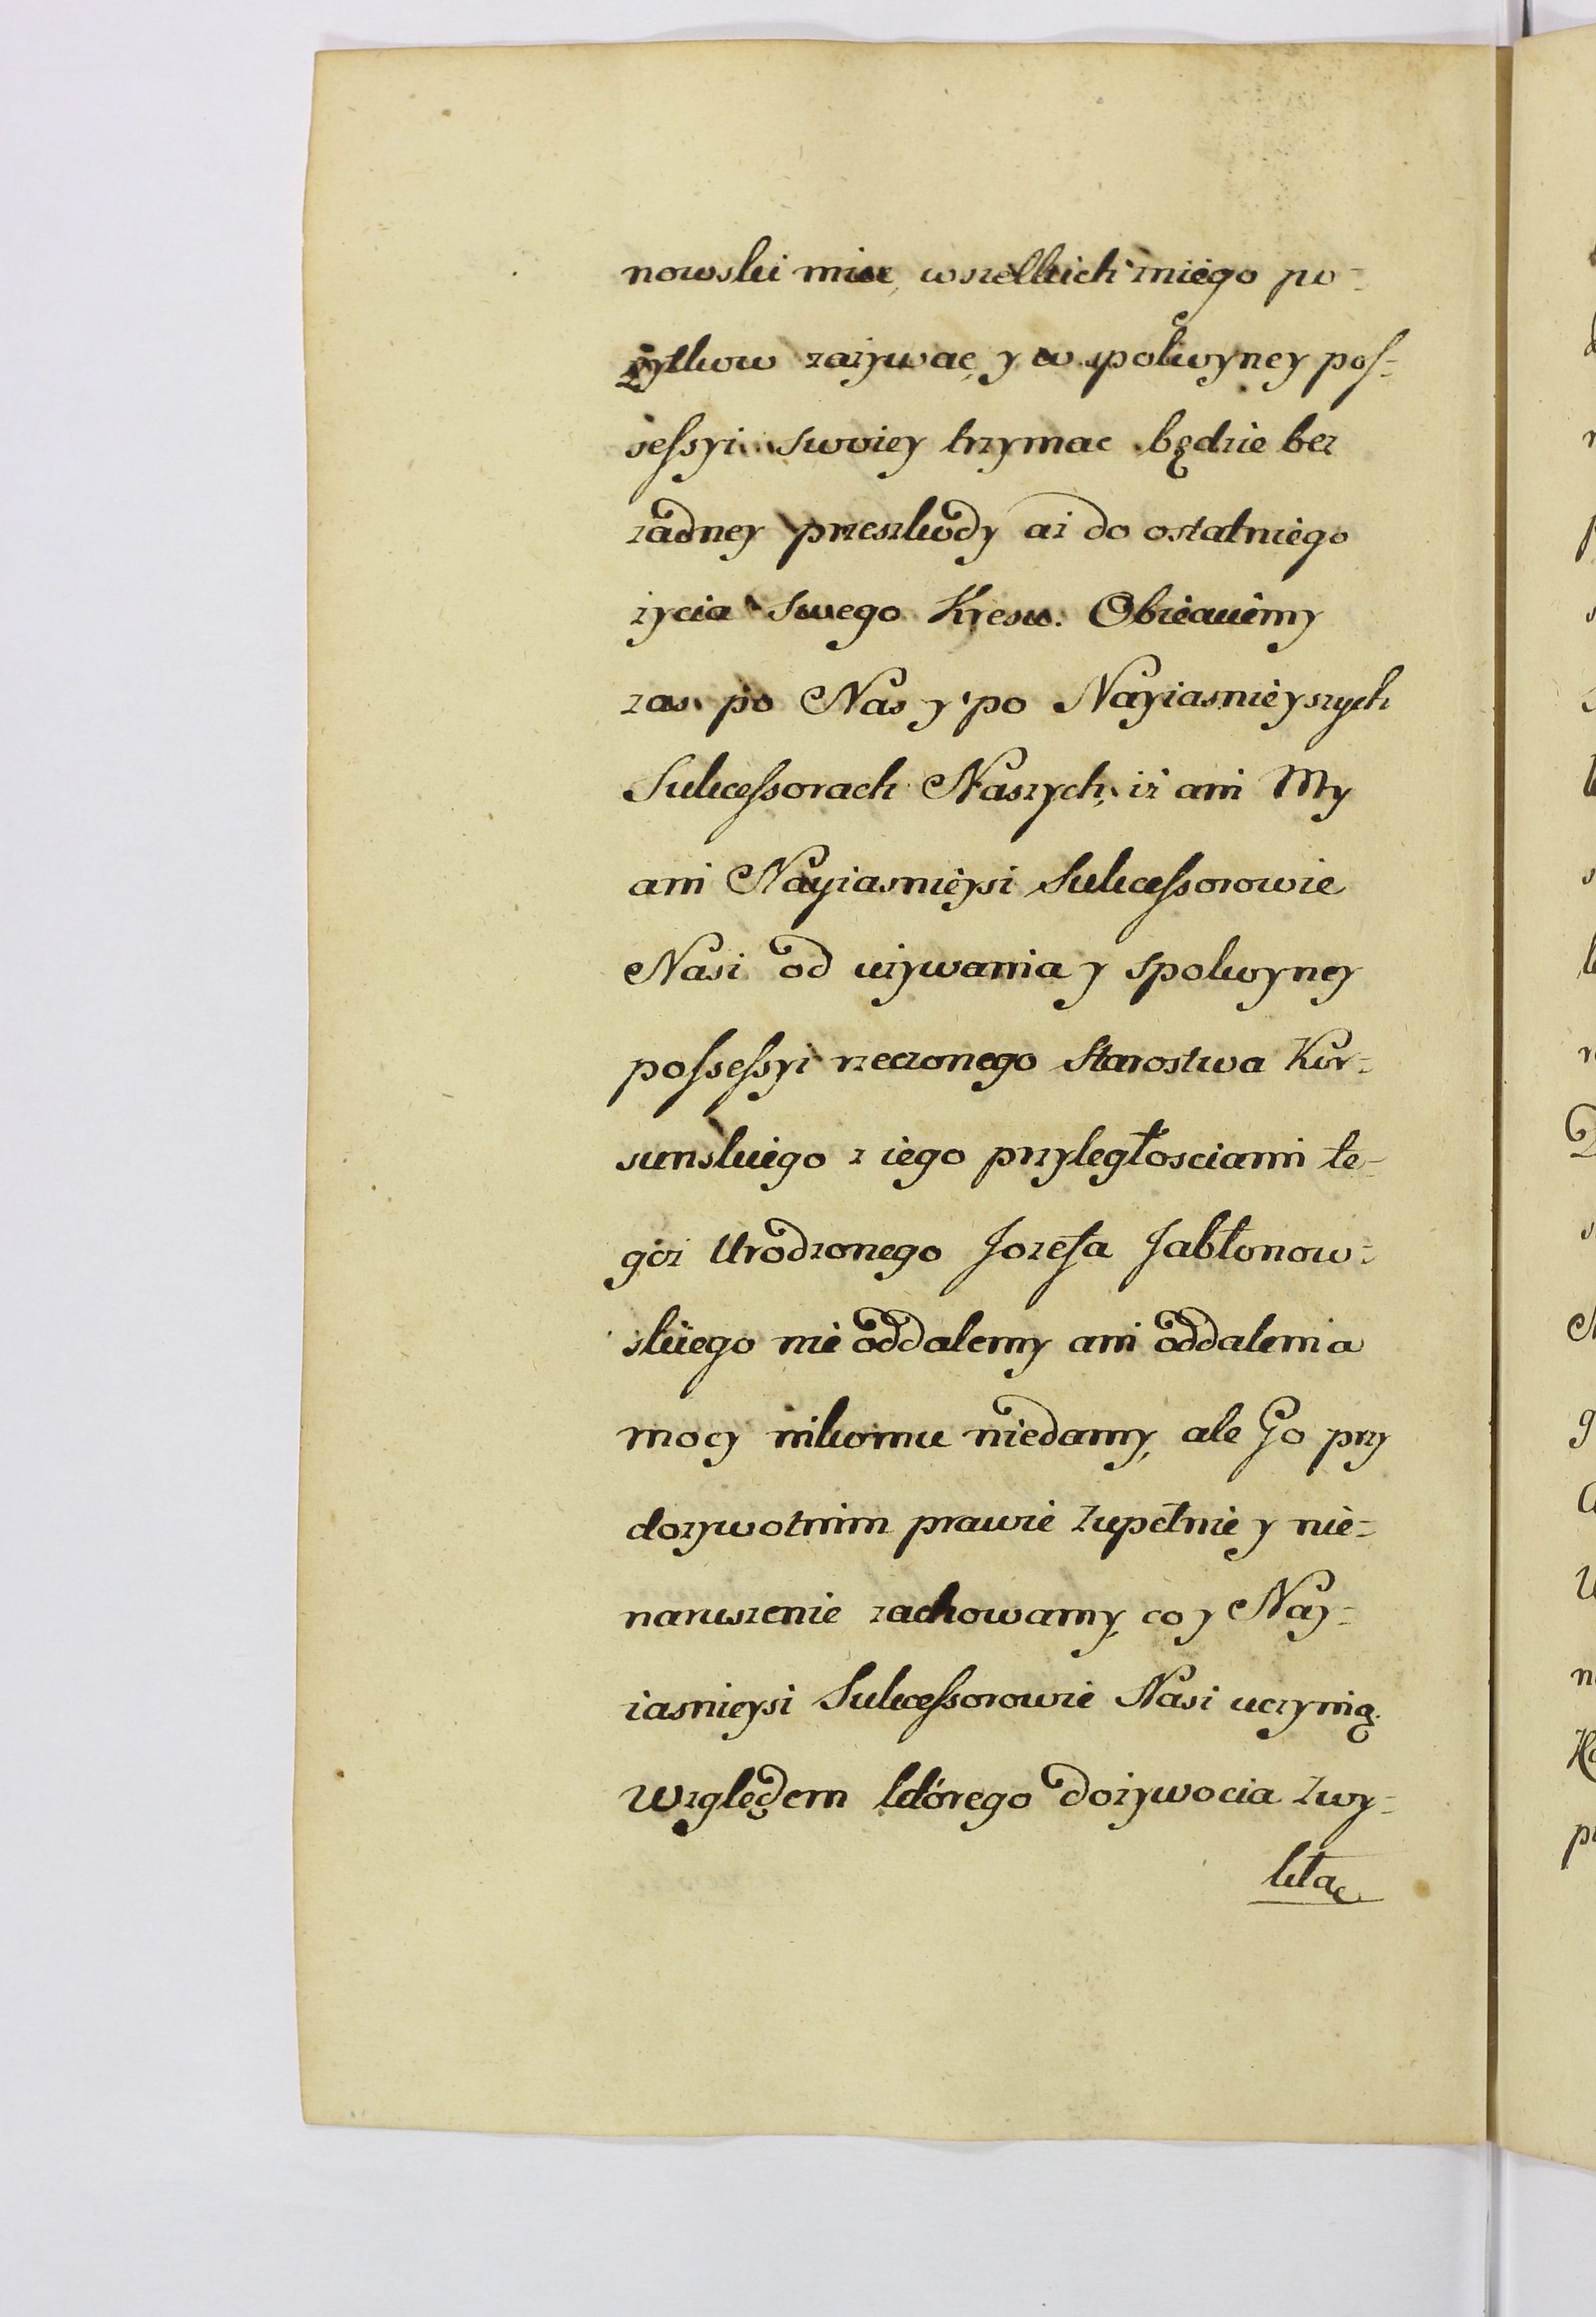 nowski miec, wszelkich zniego po-
zytkow zazywac, y w spokoyney pos-
sessyi swoiey trzymac będzie bez
zadney przeszkody az do ostatniego
zycia swego Kresu. Obiecuiemy
zas po Nas y po Nayiasnieyszych
Sukcessorach Naszych, iz ani My
ani Nayiasnieysi Sukcessorowie
Nasi od uzywania y spokoyney
possessyi rzeczonego Starostwa Kor-
sunskiego z iego przyległosciami te-
goz Urodzonego Jozefa Jabłonow-
skiego nie oddalemy ani oddalenia
mocy nikomu niedamy, ale Go przy
dozywotnim prawie zupełnie y nie-
naruszenie zachowamy, co y Nay-
iasnieysi Sukcessorowie Nasi uczynią.
Względem którego dozywocia zwy-
kła